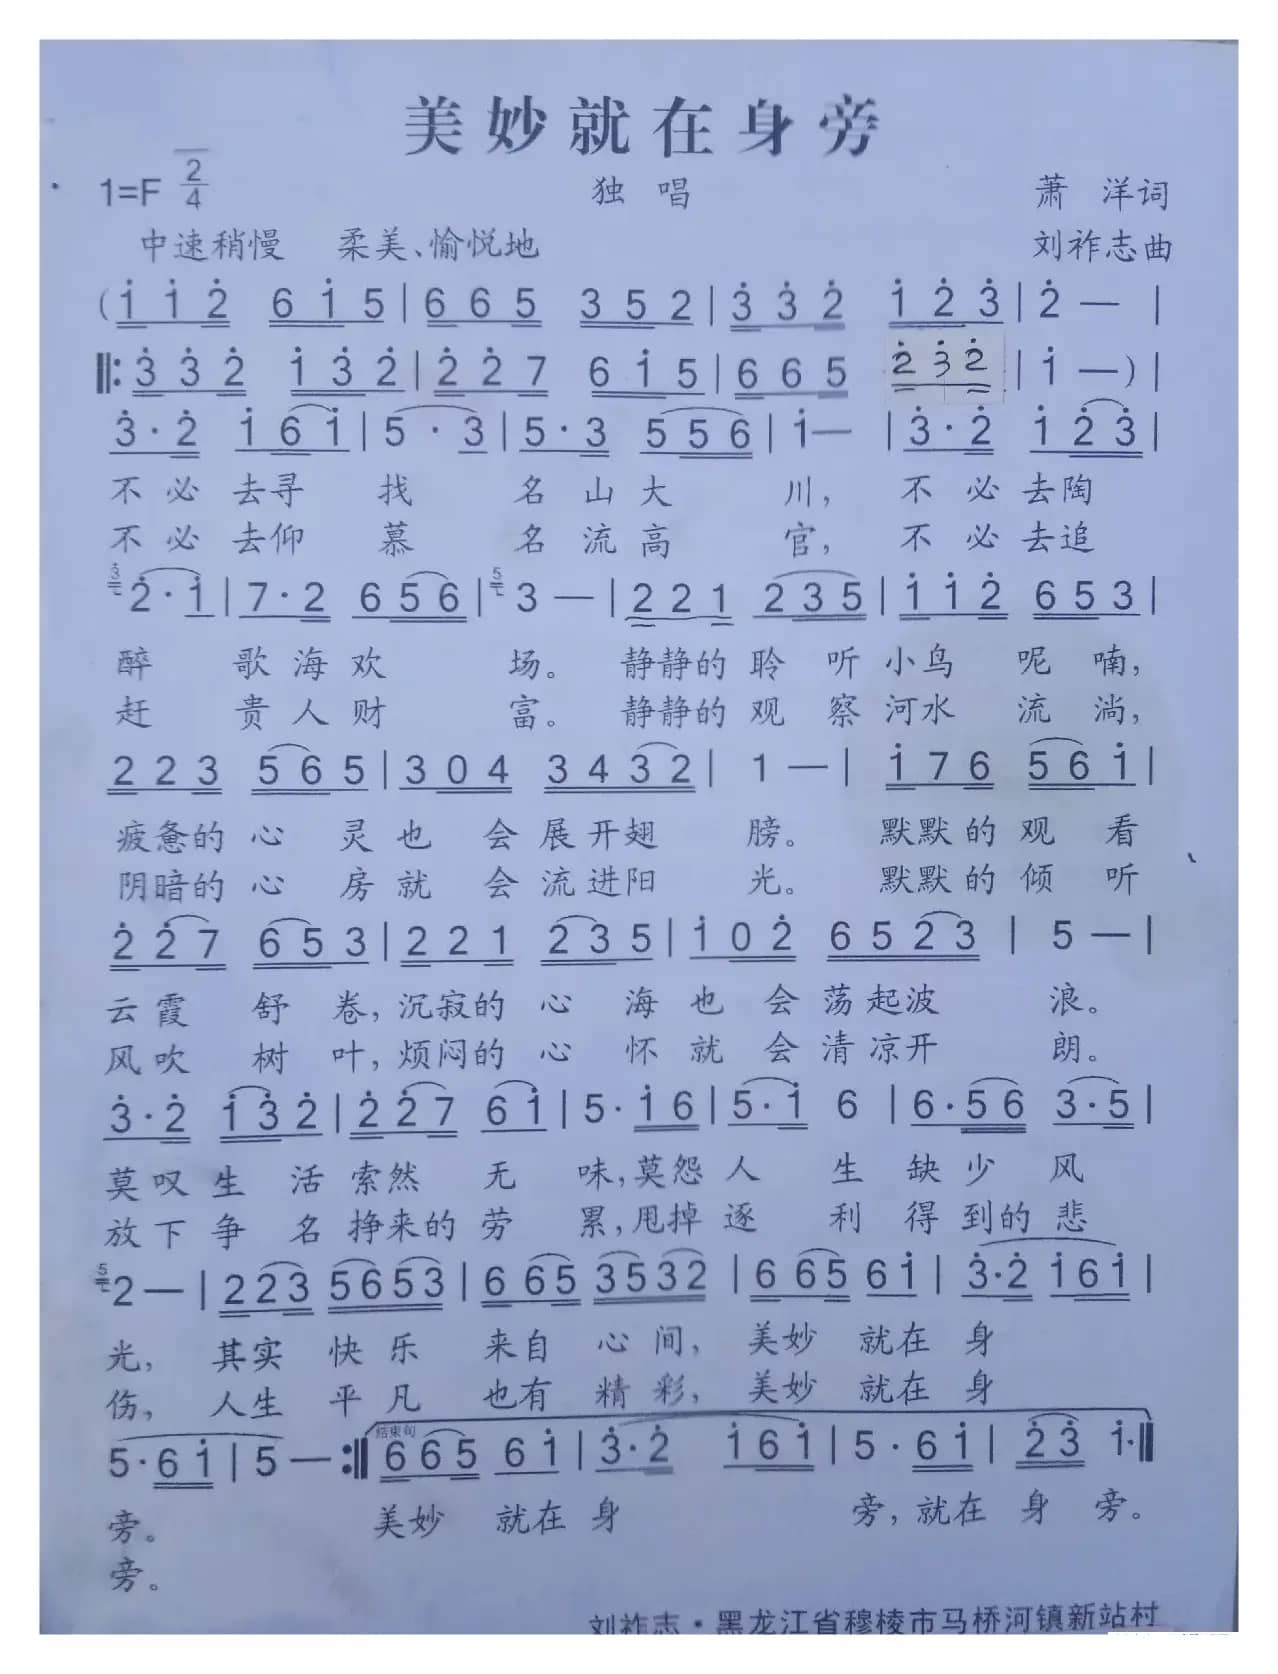 美妙就在身旁
1=F 2/4 独唱 萧洋词
中速稍慢 柔美、愉悦地 刘祚志曲
(i̇ i̇ 2̇ 6 i̇ 5 | 6 6 5 3 5 2 | 3̇ 3̇ 2̇ i̇ 2̇ 3̇ | 2̇ — |
‖: 3̇ 3̇ 2̇ i̇ 3̇ 2̇ | 2̇ 2̇ 7 6 i̇ 5 | 6 6 5 2̇ 3̇ 2̇ | i̇ —) |
3̇ · 2̇ i̇ 6 i̇ | 5 · 3 | 5 · 3 5 5 6 | i̇ — | 3̇ · 2̇ i̇ 2̇ 3̇ |
不必去寻找名山大川，不必去陶
不必去仰慕名流高官，不必去追
3̇ 2̇ · i̇ | 7 · 2 6 5 6 | 5 3 — | 2 2 1 2 3 5 | i̇ i̇ 2̇ 6 5 3 |
醉歌海欢场。静静的聆听小鸟呢喃，
赶贵人财富。静静的观察河水流淌，
2 2 3 5 6 5 | 3 0 4 3 4 3 2 | 1 — | i̇ 7 6 5 6 i̇ |
疲惫的心灵也会展开翅膀。默默的观看
阴暗的心房就会流进阳光。默默的倾听
2̇ 2̇ 7 6 5 3 | 2 2 1 2 3 5 | i̇ 0 2̇ 6 5 2 3 | 5 — |
云霞舒卷，沉寂的心海也会荡起波浪。
风吹树叶，烦闷的心怀就会清凉开朗。
3̇ · 2̇ i̇ 3̇ 2̇ | 2̇ 2̇ 7 6 i̇ | 5 · i̇ 6 | 5 · i̇ 6 | 6 · 5 6 3 · 5 |
莫叹生活索然无味，莫怨人生缺少风
放下争名挣来的劳累，甩掉逐利得到的悲
5 2 — | 2 2 3 5 6 5 3 | 6 6 5 3 5 3 2 | 6 6 5 6 i̇ | 3̇ · 2̇ i̇ 6 i̇ |
光，其实快乐来自心间，美妙就在身
伤，人生平凡也有精彩，美妙就在身
5 · 6 i̇ | 5 — :‖ 结束句 6 6 5 6 i̇ | 3̇ · 2̇ i̇ 6 i̇ | 5 · 6 i̇ | 2̇ 3̇ i̇ · ‖
旁。美妙就在身旁，就在身旁。
旁。
刘祚志·黑龙江省穆棱市马桥河镇新站村